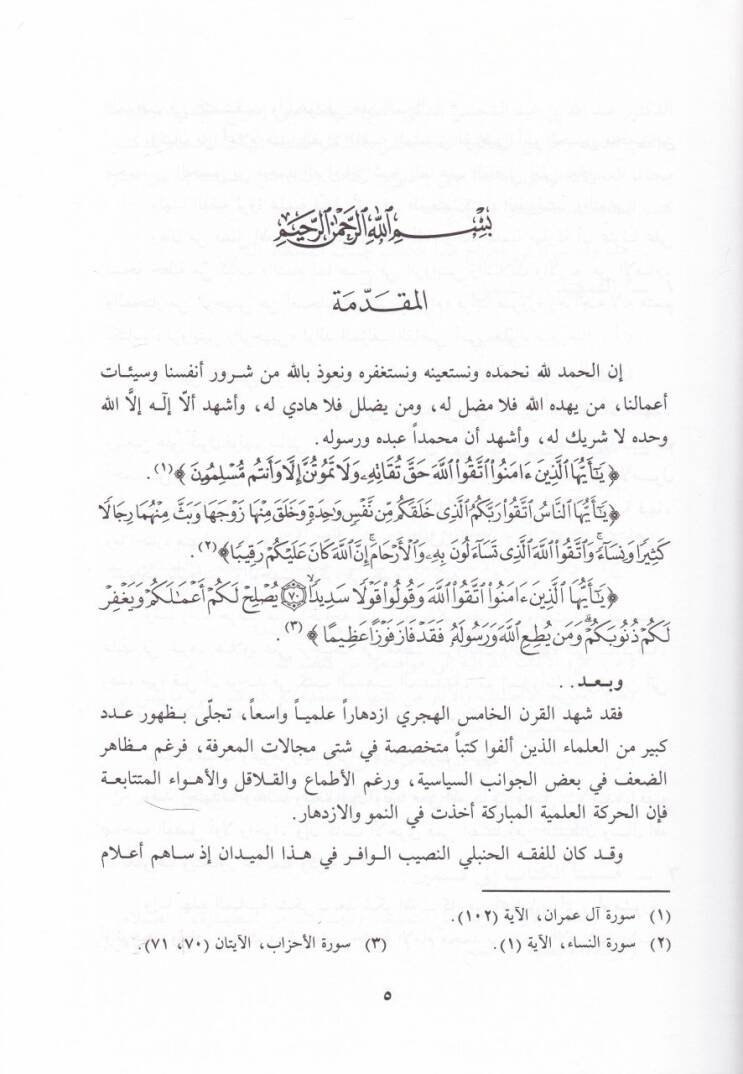 بسم الله الرحمن الرحيم
المقدّمة
إن الحمد لله نحمده ونستعينه ونستغفره ونعوذ بالله من شرور أنفسنا وسيئات
أعمالنا، من يهده الله فلا مضل له، ومن يضلل فلا هادي له، وأشهد ألّا إلٓه إلَّا الله
وحده لا شريك له، وأشهد أن محمداً عبده ورسوله.
﴿يَٰٓأَيُّهَا ٱلَّذِينَ ءَامَنُوا۟ ٱتَّقُوا۟ ٱللَّهَ حَقَّ تُقَاتِهِۦ وَلَا تَمُوتُنَّ إِلَّا وَأَنتُم مُّسْلِمُونَ﴾(١).
﴿يَٰٓأَيُّهَا ٱلنَّاسُ ٱتَّقُوا۟ رَبَّكُمُ ٱلَّذِى خَلَقَكُم مِّن نَّفْسٍ وَٰحِدَةٍ وَخَلَقَ مِنْهَا زَوْجَهَا وَبَثَّ مِنْهُمَا رِجَالًا
كَثِيرًا وَنِسَآءً ۚ وَٱتَّقُوا۟ ٱللَّهَ ٱلَّذِى تَسَآءَلُونَ بِهِۦ وَٱلْأَرْحَامَ ۚ إِنَّ ٱللَّهَ كَانَ عَلَيْكُمْ رَقِيبًا﴾(٢).
﴿يَٰٓأَيُّهَا ٱلَّذِينَ ءَامَنُوا۟ ٱتَّقُوا۟ ٱللَّهَ وَقُولُوا۟ قَوْلًا سَدِيدًا ۝٧٠ يُصْلِحْ لَكُمْ أَعْمَٰلَكُمْ وَيَغْفِرْ
لَكُمْ ذُنُوبَكُمْ ۗ وَمَن يُطِعِ ٱللَّهَ وَرَسُولَهُۥ فَقَدْ فَازَ فَوْزًا عَظِيمًا﴾(٣).
وبعد..
فقد شهد القرن الخامس الهجري ازدهاراً علمياً واسعاً، تجلّى بظهور عدد
كبير من العلماء الذين ألفوا كتباً متخصصة في شتى مجالات المعرفة، فرغم مظاهر
الضعف في بعض الجوانب السياسية، ورغم الأطماع والقلاقل والأهواء المتتابعة
فإن الحركة العلمية المباركة أخذت في النمو والازدهار.
وقد كان للفقه الحنبلي النصيب الوافر في هذا الميدان إذ ساهم أعلام
(١) سورة آل عمران، الآية (١٠٢).
(٢) سورة النساء، الآية (١). (٣) سورة الأحزاب، الآيتان (٧٠، ٧١).
٥